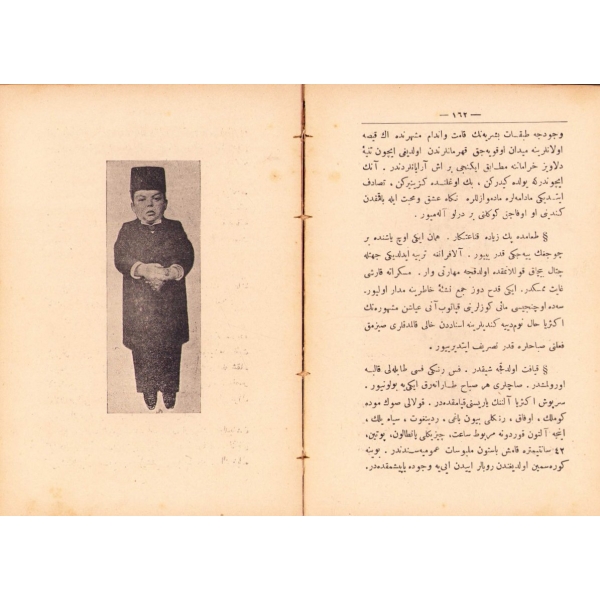 — ١٦٢ —
وجودجه طبقات بشریه‌نك قامت واندام مشهرنده اك قیصه
اولانلرینه میدان اوقویه‌جق قهرمانلرندن اولدیغی ایچون
دلاویز خرامانه مطابق ایكنجی بر اش آرایانلردندر . آنك
ایچوندركه یولده كیدركن ، بك اوغلنده كزینیركن ، تصادف
ایتدیكی مادامه‌لره مادموازللره نكاه عشق ومحبت ایله باقمقدن
كندینی او اوفاجق كوكلنی بر درلو آله‌میور .
§ طعامده پك زیاده قناعتكار . همان ایكی اوچ یاشنده بر
چوجغك ییه‌جكی قدر ییيور . آلافرانغه تربیه ایدلدیكی جهتله
چتال بچاق قوللانمقده اولدقجه مهارتی وار . مسكراته قارشی
غایت ممسكدر . ایكی قدح دوز جمع نشئهٔ خاطرینه مدار اولیور .
سه‌ده اوچنجیسی مائی كوزلرینی
اكثریا حال نومدییه كندیلرینه اسناددن خالی قالمدقلری صیزمق
فعلنی صباحلره قدر تصریف ایتدیرییور .
§ قیافت اولدقجه شیقدر . فس رنكی فسی طابله‌لی قالبه
اورولمشدر . صاچلری هر صباح طارانه‌رق ایكی‌یه بولونیور .
سرپوش اكثریا آلنك یاریسنی قپامقده‌در . قولالی صوك موده
كوملك ، اوفاق ، رنكلی بیون باغی . ردینغوت ، سیاه یلك ،
اینجه آلتون قوردونه مربوط ساعت، چیزیكلی پانطالون، پوتین،
٤٢ سانتیمتره قامش باستون ملبوسات عمومیه‌سندندر . بوینه
كوره‌سمین اولدیغندن روبالر اییدن ایی‌یه وجوده یاپیشمقده‌در.